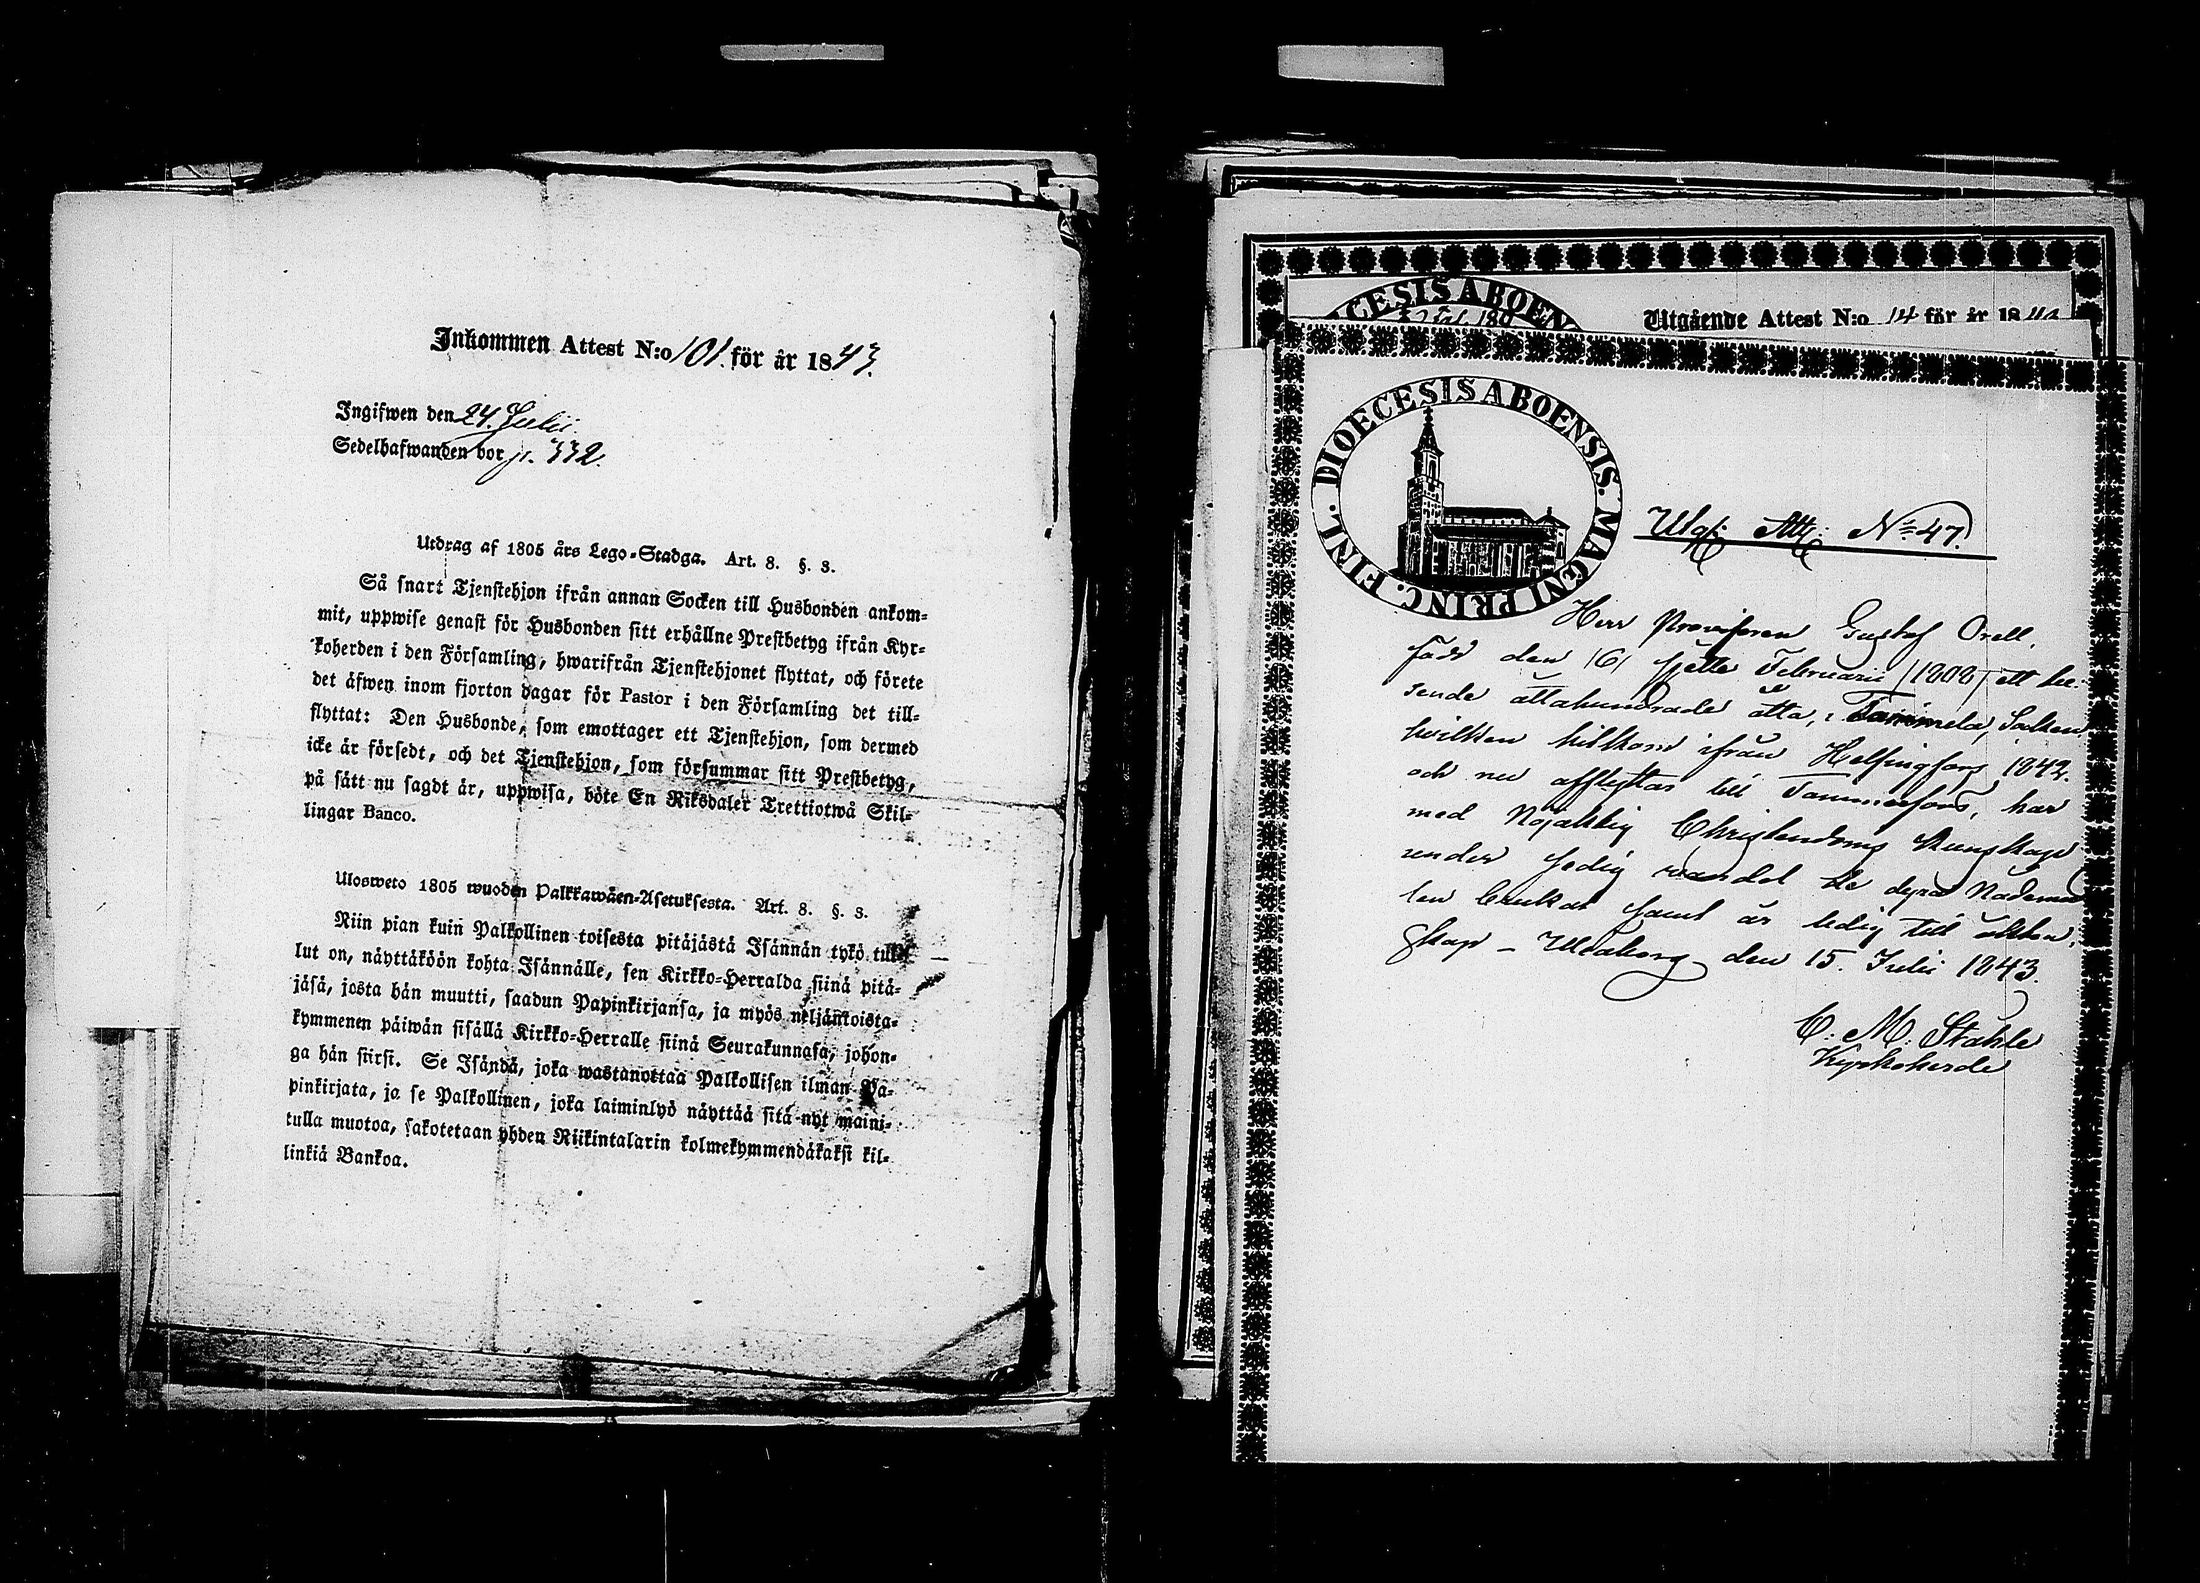 Inkommen Attest N:o 101. för år 1843.
Ingifwen den 24. Julii.
Sedelhafwanden bor p. 332.
Utdrag af 1805 års Lego-Stadga. Art. 8. §. 3.
Så snart Tjenstehjon ifrån annan Socken till Husbonden ankom-
mit, uppwise genast för Husbonden sitt erhållne Prestbetyg ifrån Kyr-
koherden i den Församling, hwarifrån Tjenstehjonet flyttat, och förete
det äfwen inom fjorton dagar för Pastor i den Församling det till-
flyttat: Den Husbonde, som emottager ett Tjenstehjon, som dermed
icke är försedt, och det Tjenstehjon, som försummar sitt Prestbetyg,
på sätt nu sagdt är, uppwisa, böte En Riksdaler Trettiotwå Skil-
lingar Banco.
Ulosweto 1805 wuoden Palkkawäen-Asetuksesta. Art. 8. §. 3.
Niin pian kuin Palkollinen toisesta pitäjästä Isännän tykö tul-
lut on, näyttäköön kohta Isännälle, sen Kirkko-Herralda siinä pitä-
jäsä, josta hän muutti, saadun Papinkirjansa, ja myös neljäntoista-
kymmenen päiwän sisällä Kirkko-Herralle siinä Seurakunnasa, johon-
ga hän siirsi. Se Isändä, joka wastanottaa Palkollisen ilman Pa-
pinkirjata, ja se Palkollinen, joka laiminlyö näyttää sitä nyt maini-
tulla muotoa, sakotetaan yhden Riikintalarin kolmekymmendäkaksi kil-
linkiä Bankoa.
CESIS ABOEN
Utgående Attest N:o 14 för år 18
DIOECESIS ABOENSIS. MAGNI PRINC. FINL.
Utg: Att: No 47.
Herr Provisoren Gustaf Orell,
född den /6/ sjette Februarii /1808/ ett tu-
sende åttahundrade åtta, i Tammela Socken
hvilken hitkom ifrån Helsingfors 1842.
och nu afflyttar till Tammerfors, har
med Nöjaktig Christendoms Kunskap
under sedig vandel de dyra Nådemed
len brukat samt är ledig till äkten-
skap – Uleåborg den 15. Julii 1843.
C. M. Stahle
Kyrkoherde